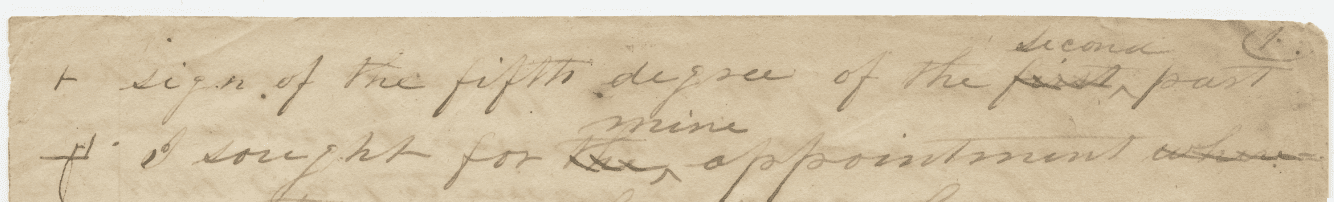 1.
second
sign of the fifth degree of the first, part
mine
I sought for the, appointment where